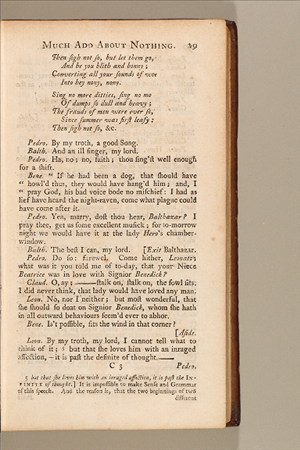 MUCH ADO ABOUT NOTHING. 39
Then sigh not so, but let them go,
And be you blith and bonny;
Converting all your sounds of woe
Into hey nony, nony.
Sing no more ditties, sing no mo
Of dumps so dull and heavy;
The frauds of men were ever so,
Since summer was first leafy:
Then sigh not so, &c.
Pedro. By my troth, a good Song.
Balth. And an ill singer, my lord.
Pedro. Ha, no; no, faith; thou sing'st well enough
for a shift.
Bene. " If he had been a dog, that should have
" howl'd thus, they would have hang'd him; and, I
" pray God, his bad voice bode no mischief: I had as
lief have heard the night-raven, come what plague could
have come after it.
Pedro. Yea, marry, dost thou hear, Balthazar? I
pray thee, get us some excellent musick; for to-morrow
night we would have it at the lady Hero's chamber-
window.
Balth. The best I can, my lord. [Exit Balthazar.
Pedro. Do so: farewel. Come hither, Leonato;
what was it you told me of to-day, that your Niece
Beatrice was in love with Signior Benedick?
Claud. O, ay;——stalk on, stalk on, the fowl sits:
I did never think, that lady would have loved any man.
Leon. No, nor I neither; but most wonderful, that
she should so doat on Signior Benedick, whom she hath
in all outward behaviours seem'd ever to abhor.
Bene. Is't possible, sits the wind in that corner?
[Aside.
Leon. By my troth, my lord, I cannot tell what to
think of it; 5 but that she loves him with an inraged
affection,—it is past the definite of thought.——
C 3 Pedro.
5 but that she loves him with an inraged affection, it is past the IN-
FINITE of thought.] It is impossible to make Sense and Grammar
of this speech. And the reason is, that the two beginnings of two
different